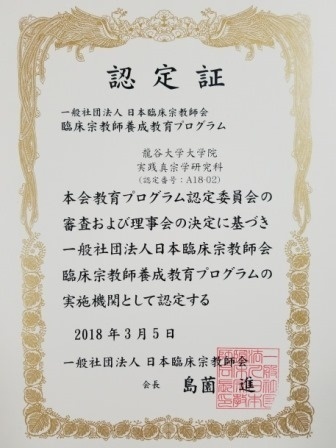 認定証
一般社団法人 日本臨床宗教師会
臨床宗教師養成教育プログラム
龍谷大学大学院
実践真宗学研究科
（認定番号：A18-02）
本会教育プログラム認定委員会の
審査および理事会の決定に基づき
一般社団法人日本臨床宗教師会
臨床宗教師養成教育プログラムの
実施機関として認定する
2018年3月5日
一般社団法人 日本臨床宗教師会
会長 島薗 進